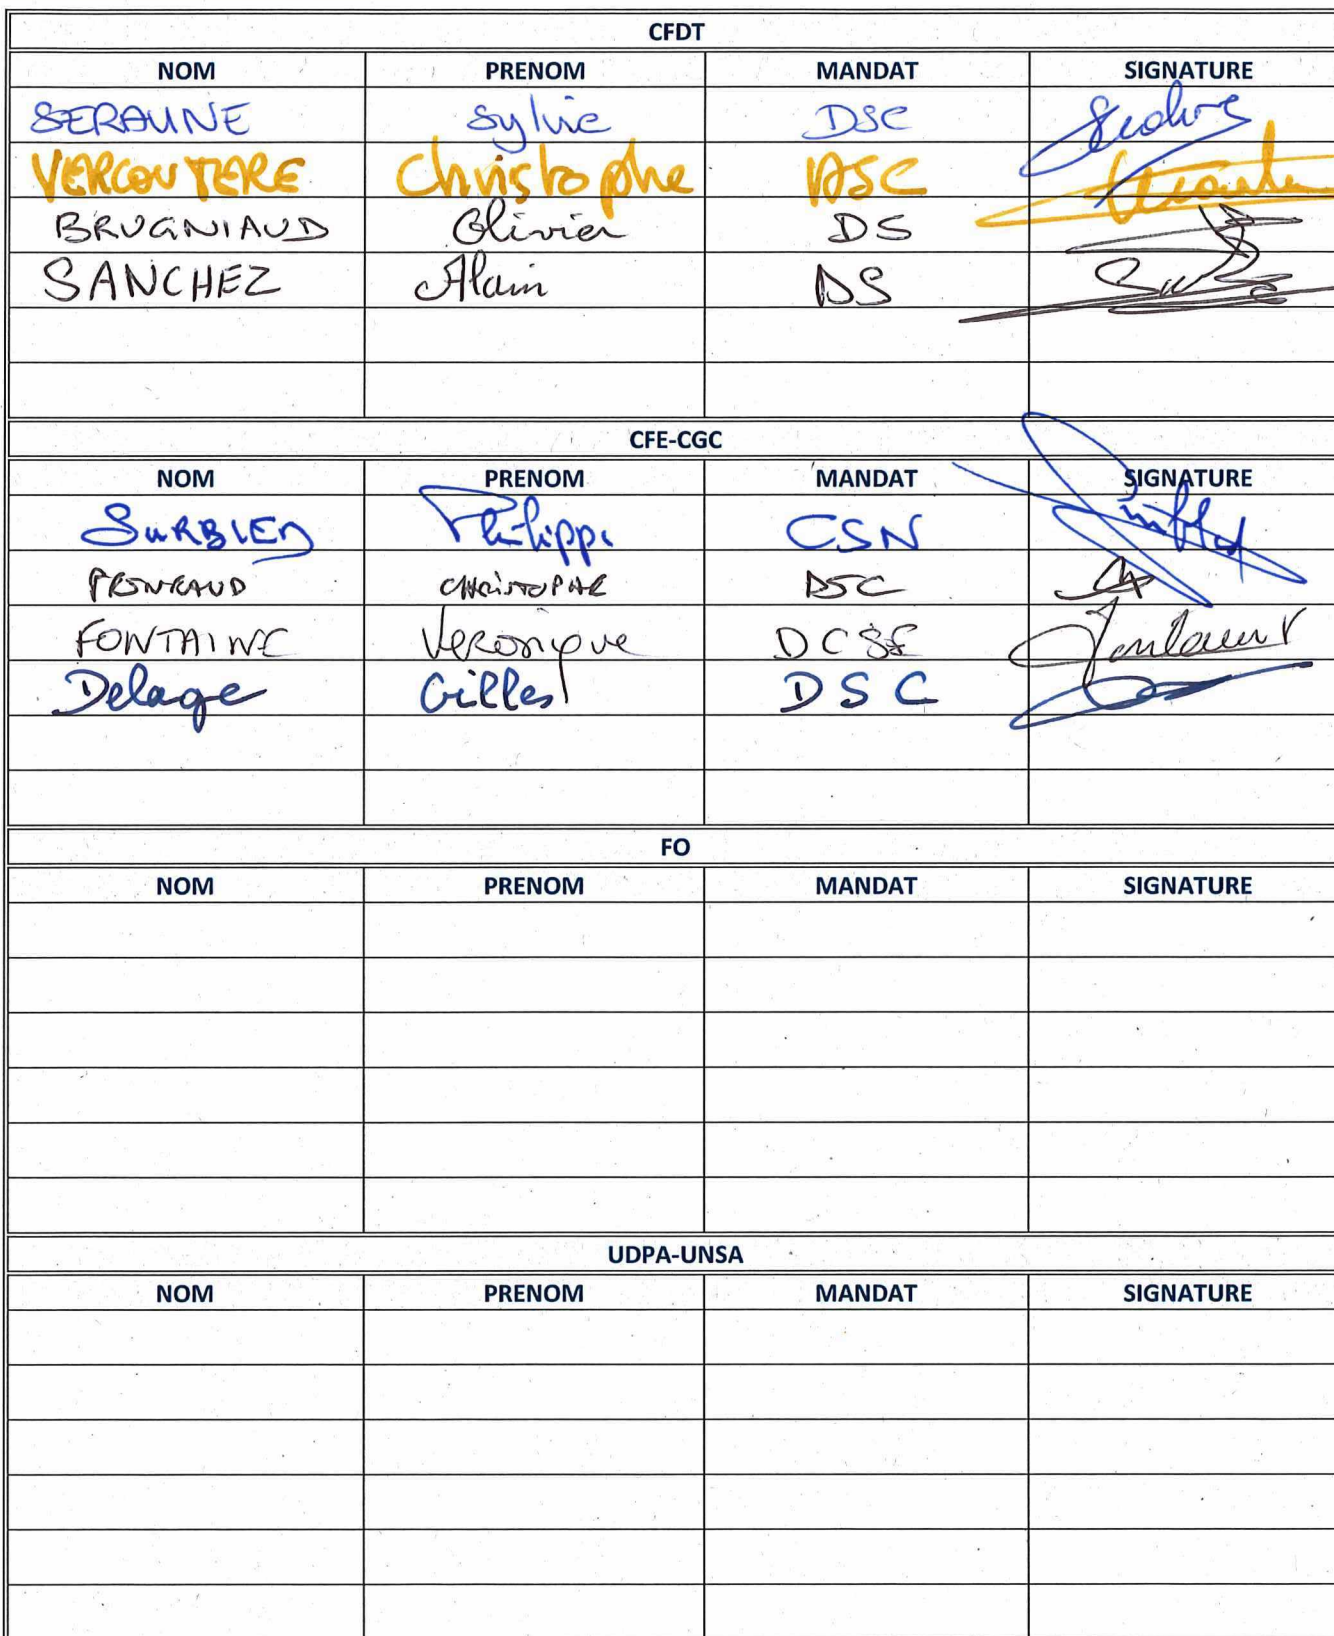 CFDT
NOM PRENOM MANDAT SIGNATURE
SERAUNE Sylvie DSC
VERCOUTERE Christophe DSC
BRUGNIAUD Olivier DS
SANCHEZ Alain DS
CFE-CGC
NOM PRENOM MANDAT SIGNATURE
SURBLED Philippe CSN
CHRISTOPHE DSC
FONTAINE Veronique DCSE
Delage Gilles DSC
FO
NOM PRENOM MANDAT SIGNATURE
UDPA-UNSA
NOM PRENOM MANDAT SIGNATURE